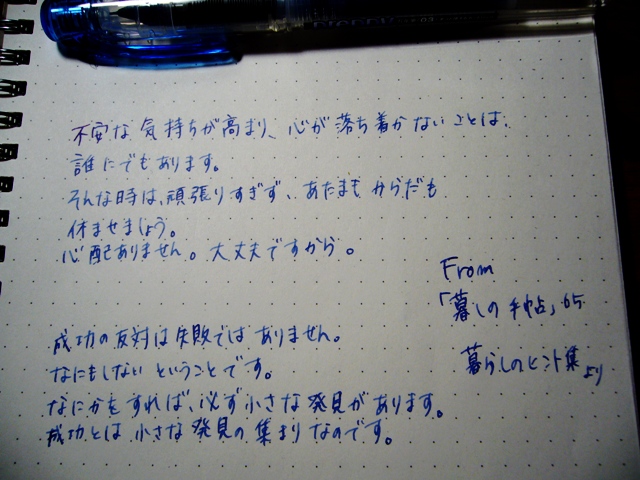 不安な気持ちが高まり、心が落ち着かないことは、
誰にでもあります。
そんな時は、頑張りすぎず、あたまも からだも
休ませましょう。
心配ありません。大丈夫ですから。
From
「暮しの手帖」65
暮らしのヒント集より
成功の反対は失敗ではありません。
なにもしない ということです。
なにかをすれば、必ず小さな発見があります。
成功とは 小さな発見の集まりなのです。